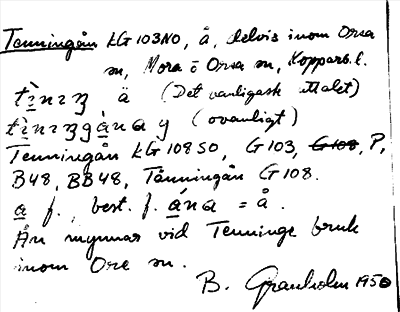 Tenningån LG 103 NO, å, delvis inom Orsa
sn, Mora o Orsa sn, Kopparb. l.
tìnɩʒ, ä (Det vanligaste uttalet)
tìnɩʒgàna y (ovanligt)
Tenningån LG 108 SO, G 103, G 108, P,
B48, BB48, Tänningån G 108.
a f., best. f. ána = å.
Ån mynnar vid Tenninge bruk
inom Ore sn.
B. Granholm 1950